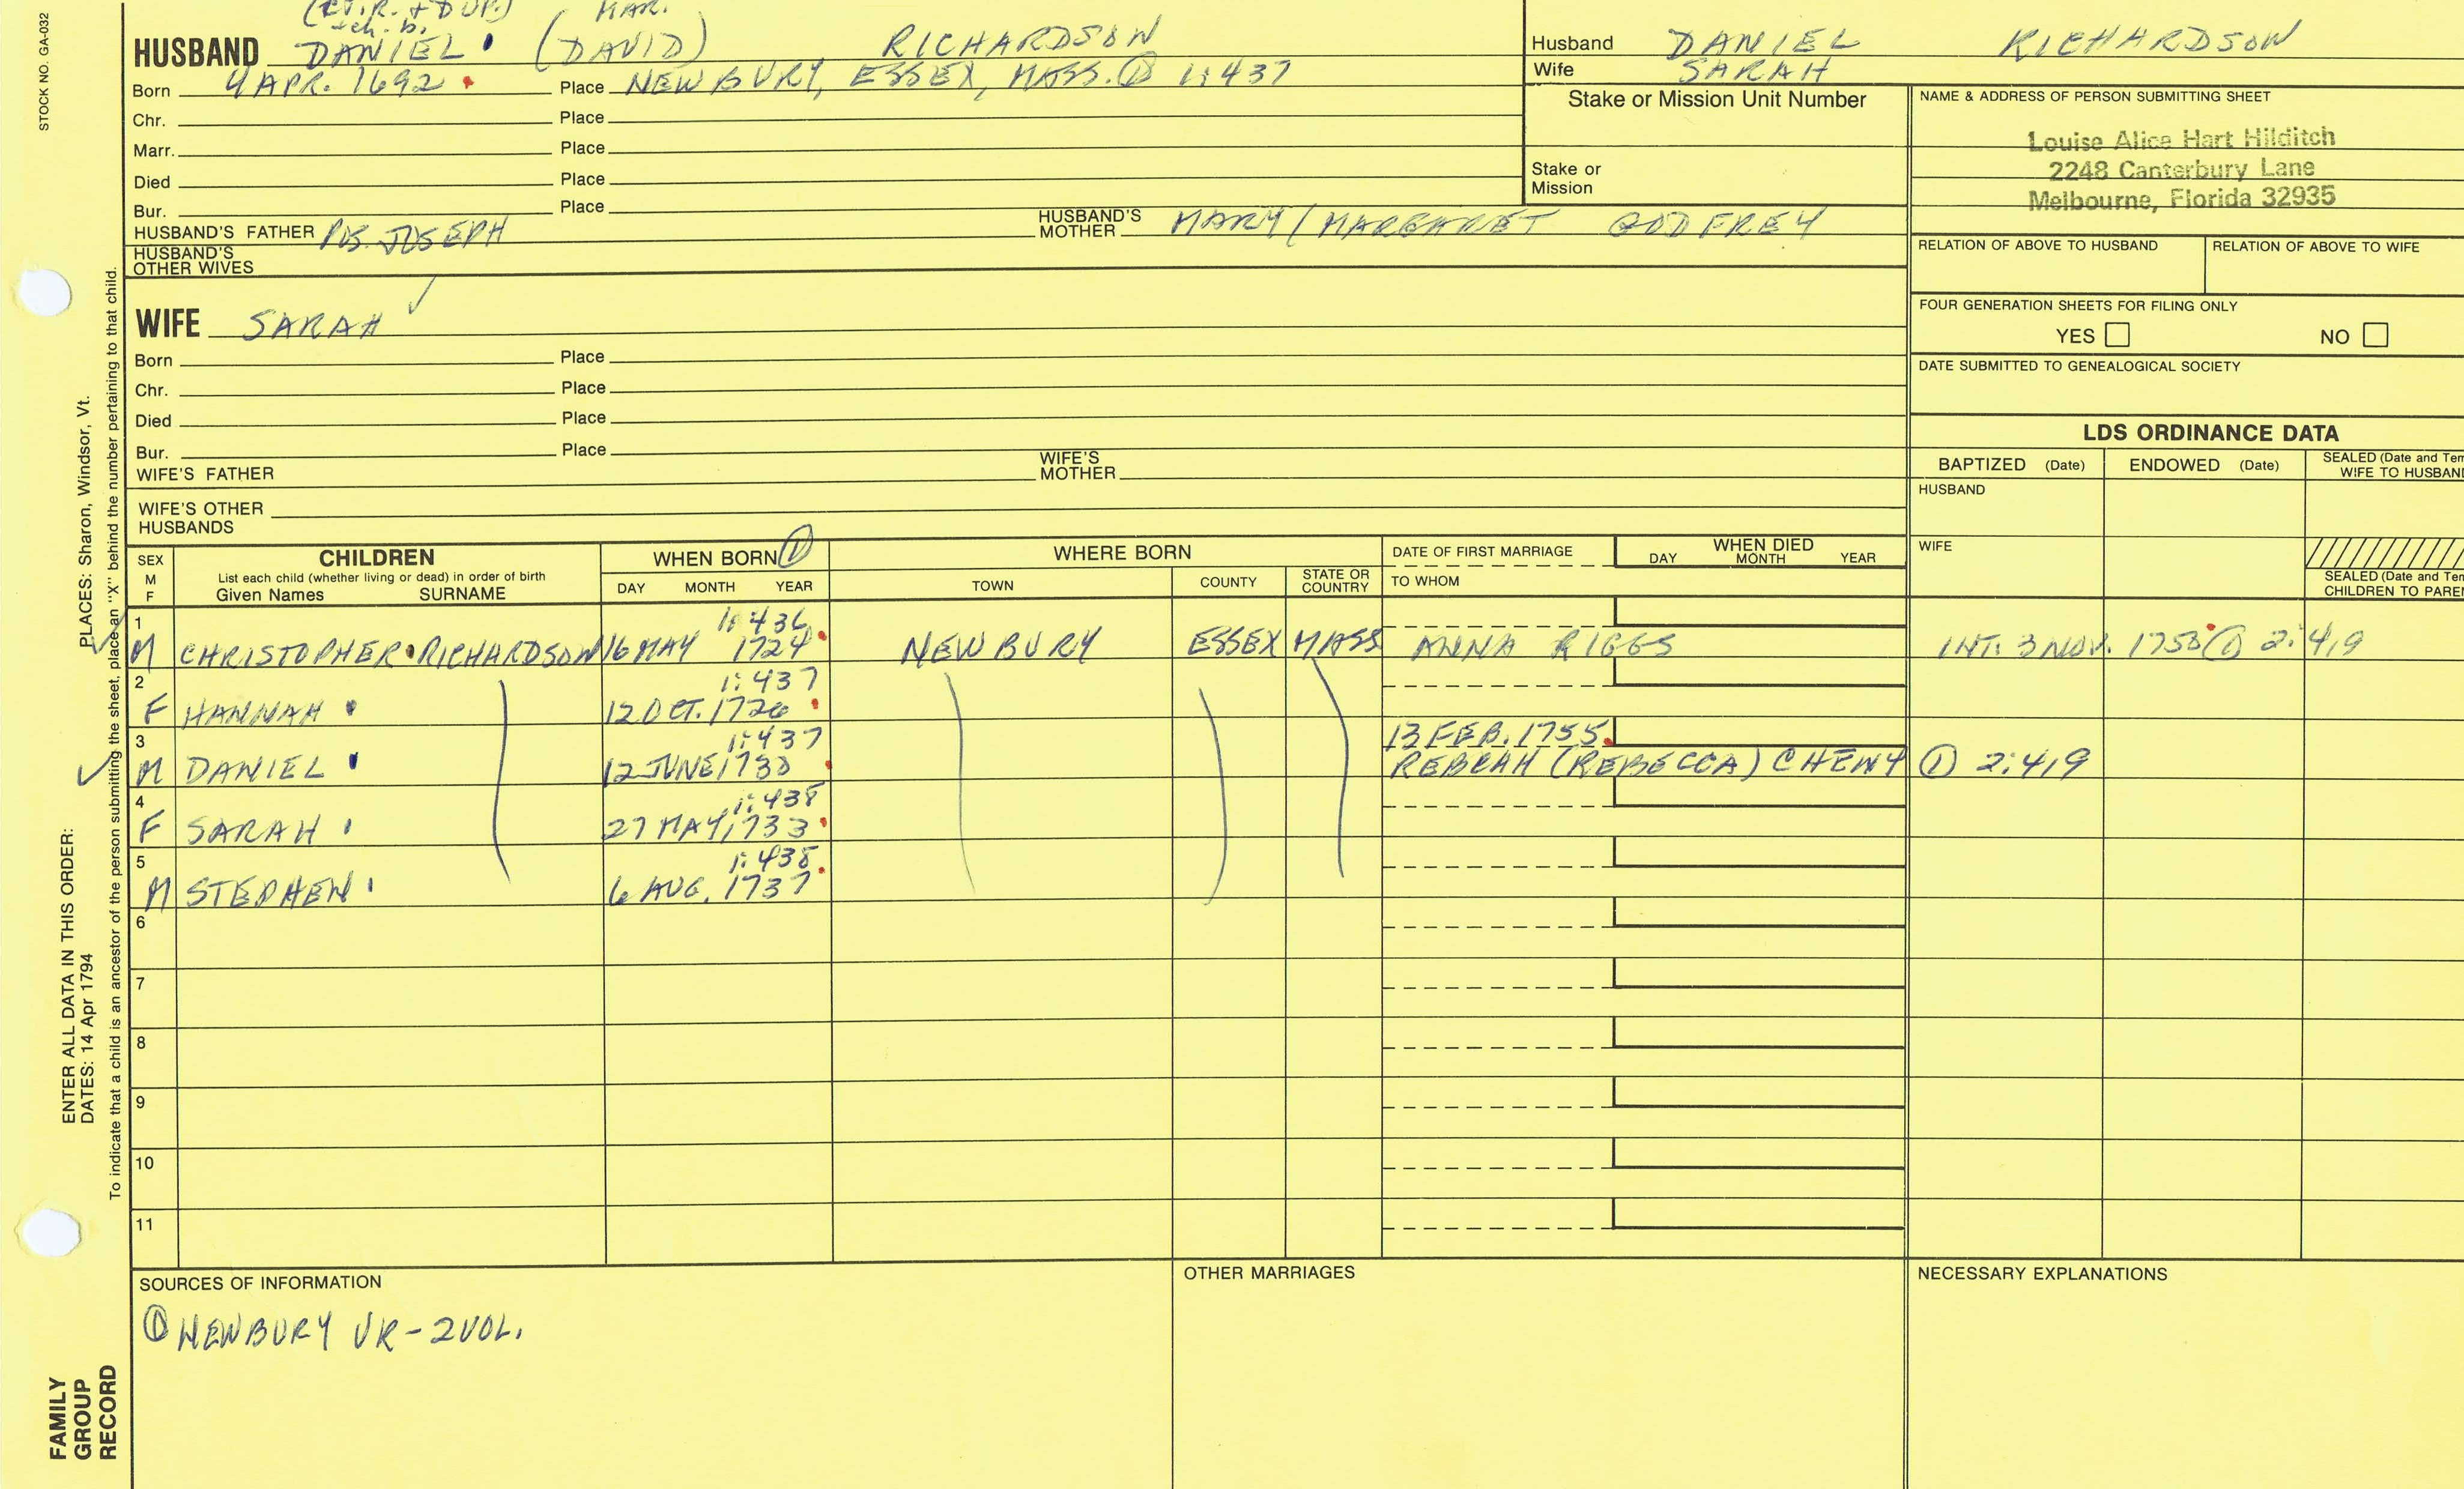 STOCK NO. GA-032
(CT.R. + DUP.) MAR.
+ch. b.
HUSBAND DANIEL (DAVID) RICHARDSON
Born 4 APR. 1692 Place NEWBURY, ESSEX, MASS. ① 1:437
Chr. Place
Marr. Place
Died Place
Bur. Place
HUSBAND'S FATHER JOSEPH HUSBAND'S MOTHER MARY/MARGARET GODFREY
HUSBAND'S
OTHER WIVES
Husband DANIEL RICHARDSON
Wife SARAH
Stake or Mission Unit Number
Stake or
Mission
NAME & ADDRESS OF PERSON SUBMITTING SHEET
Louise Alice Hart Hilditch
2248 Canterbury Lane
Melbourne, Florida 32935
RELATION OF ABOVE TO HUSBAND RELATION OF ABOVE TO WIFE
FOUR GENERATION SHEETS FOR FILING ONLY
YES NO
DATE SUBMITTED TO GENEALOGICAL SOCIETY
WIFE SARAH
Born Place
Chr. Place
Died Place
Bur. Place
WIFE'S FATHER WIFE'S MOTHER
WIFE'S OTHER
HUSBANDS
LDS ORDINANCE DATA
BAPTIZED (Date) ENDOWED (Date) SEALED (Date and Tem
WIFE TO HUSBAN
HUSBAND
WIFE
SEALED (Date and Te
CHILDREN TO PARE
SEX
M
F
CHILDREN
List each child (whether living or dead) in order of birth
Given Names SURNAME
WHEN BORN ①
DAY MONTH YEAR
WHERE BORN
TOWN COUNTY STATE OR COUNTRY
DATE OF FIRST MARRIAGE
TO WHOM
WHEN DIED
DAY MONTH YEAR
1 1:436
M CHRISTOPHER RICHARDSON 16 MAY 1724 NEWBURY ESSEX MASS ANNA RIGGS INT. 3 NOV. 1753 ① 2:419
2 1:437
F HANNAH 12 OCT. 1726
3 1:437 13 FEB. 1755
M DANIEL 12 JUNE 1730 REBCAH (REBECCA) CHENY ① 2:419
4 1:438
F SARAH 27 MAY, 1733
5 1:438
M STEPHEN 6 AUG. 1737
6
7
8
9
10
11
SOURCES OF INFORMATION
① NEWBURY VR - 2 VOL.
OTHER MARRIAGES
NECESSARY EXPLANATIONS
PLACES: Sharon, Windsor, Vt.
To indicate that a child is an ancestor of the person submitting the sheet, place an "X" behind the number pertaining to that child.
ENTER ALL DATA IN THIS ORDER:
DATES: 14 Apr 1794
FAMILY
GROUP
RECORD